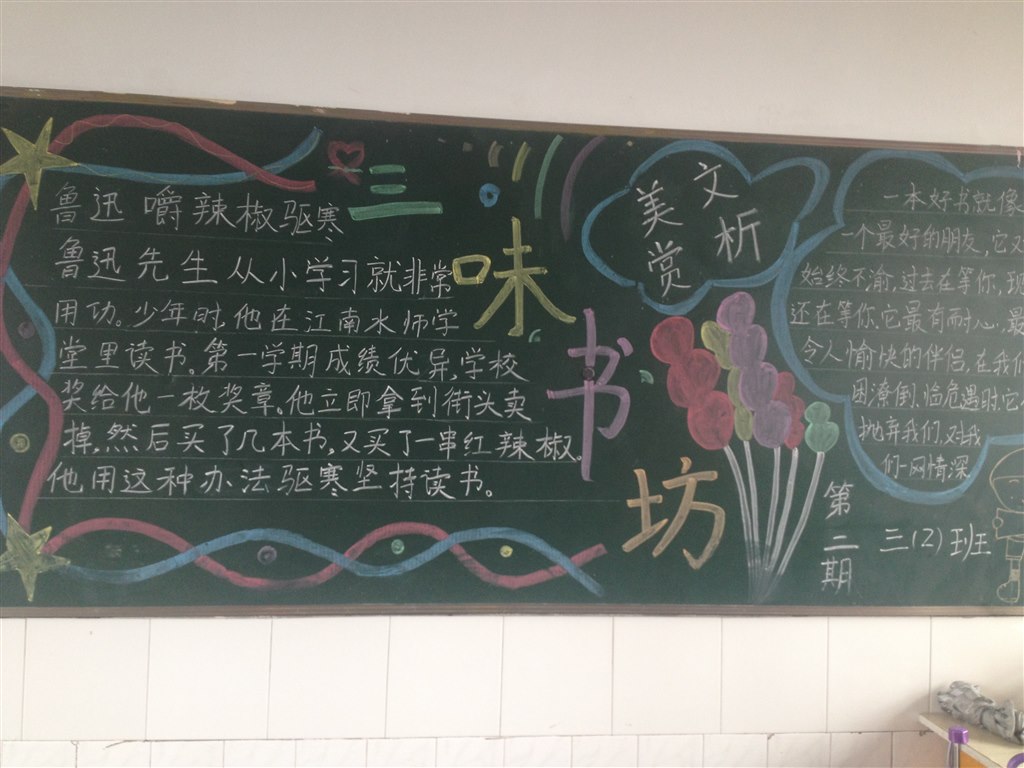 鲁迅嚼辣椒驱寒
鲁迅先生从小学习就非常
用功。少年时,他在江南水师学
堂里读书。第一学期成绩优异,学校
奖给他一枚奖章。他立即拿到街头卖
掉,然后买了几本书,又买了一串红辣椒。
他用这种办法驱寒坚持读书。
三味书坊
美文
赏析
一本好书就像
一个最好的朋友,它又
始终不渝,过去在等你,现
还在等你,它最有耐心,最
令人愉快的伴侣,在我们
困潦倒,临危遇时,它
抛弃我们,对我
们一网情深
第二期
三(2)班